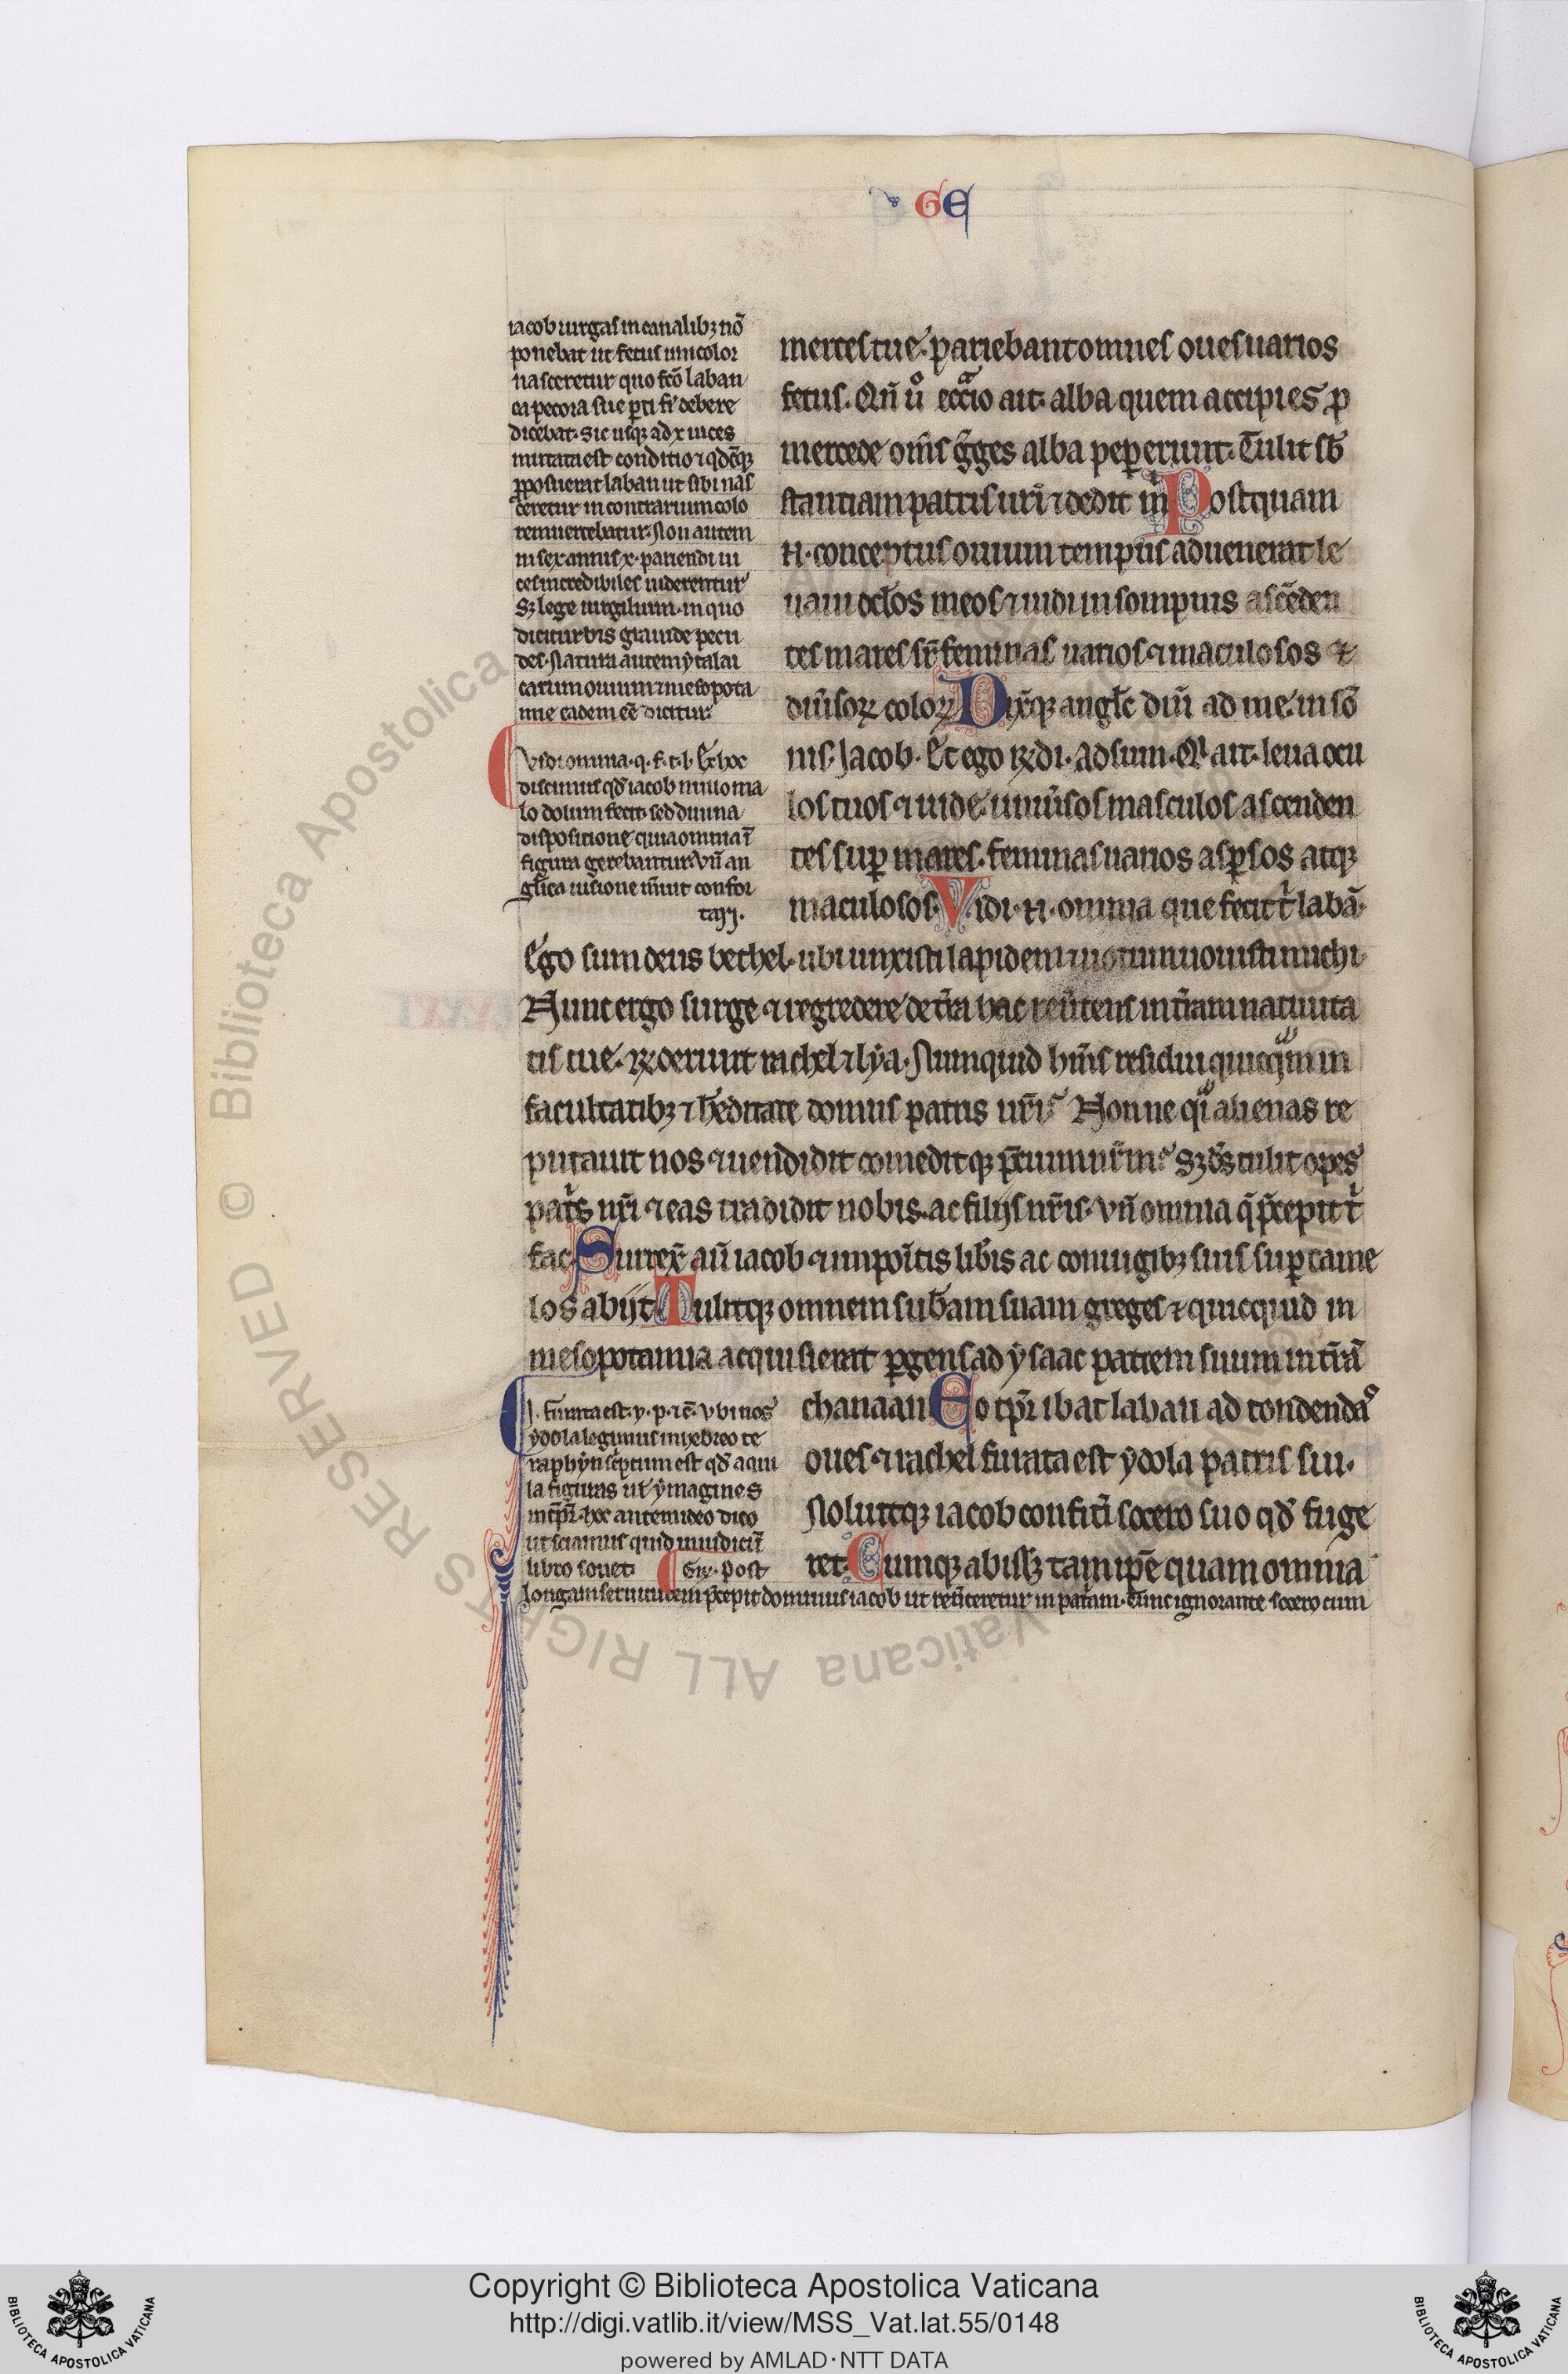 GE
iacob uirgas in canalibꝫ nō
ponebat ut fetus unicolor
nasceretur quo fcō laban
ea pecora sue ꝑti fi᷑ debere
dicebat. Sic usqꝫ ad x uices
mutata est conditio ⁊ qdcūqꝫ
ꝓposuerat laban ut sibi nas
ceretur in contrarium colo
rem uertebatur. Non autem
in sex annis x. pariendi ui
ces incredibiles uiderentur
Sꝫ lege uirgilium. in quo
dicitur bis grauide pecu
des. Natura autem ytalai
carum ouium ⁊ mesopota
mie eadem eē dicitur.
Vidi omnia. q. f. t. l. Ex hoc
discimus qd̄ iacob nullo ma
lo dolum fecit. sed diuina
dispositione quia omnia ī
figura gerebantur. Vn̄ an
gl̄ica uisione m̄uit confor
tari.
merces tue. pariebant omnes oues uarios
fetus. Qn̄ uͦ ecͣrio ait. alba quem accipies ꝓ
mercede om̄s g̊ges alba pepererunt. Tulit sb̄
stantiam patris ur̄i ⁊ dedit m̊. Postquam
.n. conceptus ouium tempus aduenerat le
uaui oclos meos ⁊ uidi in sompnis ascēden
tes mares sr̄ feminas uarios ⁊ maculosos ⁊
diu̾soꝝ coloꝝ. Dixitqꝫ angl̄s dn̄i ad me. in sō
nis. Jacob. Et ego rn̄di. Adsum. Q̇ ait. leua ocu
los tuos ⁊ uide. uniu̾sos masculos ascenden
tes suꝑ mares. feminas uarios asꝑsos atqꝫ
maculosos. Vidi .n. omnia que fecit t̊ labā.
Ego sum deus bethel. ubi unxisti lapidem ⁊ uotum uouisti michi.
Nunc ergo surge ⁊ egredere de t̾ra hac reu̾tens in t̾ram natiuita
tis tue. Rn̄derunt rachel ⁊ lya. Nunquid hēm̄s residui quicq̄m in
facultatibꝫ ⁊ h̄editate domus patris nr̄i? Nonne q̊i alienas re
putauit nos ⁊ uendidit comeditqꝫ p̄cium nr̄m? Sꝫ ds̄ tulit opes
pat̊s nr̄i ⁊ eas tradidit nobis. ac filijs nr̄is. Vn̄ omnia q̄ p̄cepit t̊
fac. Surrex̄ au̅ iacob ⁊ impoītis lib̾is ac coniugibꝫ suis suꝑ came
los abijt. Tulitqꝫ omnem sub̄am suam greges ⁊ quicquid in
mesopotamia acquisierat ꝑgens ad ysaac patrem suum in t̾rā
chanaan. Eo tp̄r ibat laban ad tondendaˢ
oues ⁊ rachel furata est ydola patris sui.
Noluitqꝫ iacob confit̾i socero suo qd̄ fuge
ret. Cumqꝫ abissꝫ tam ipe quam omnia
.J. furata est. y. p. ⁊c̄. Vbi nos
ydola legimus in hebreo te
raphyn sc̊ptum est qd̄ aqui
la figuras ut̾ ymagines
int̾pr̄. hoc autem ideo dico
ut sciamus quid in iudicū
libro sonet. Gr̄. Post
longam seruitutem p̄cepit dominus iacob ut reu̾teretur in pat̊am. Tunc ignorante socero cum
© Biblioteca Apostolica Vaticana ALL RIGHTS RESERVED
Copyright © Biblioteca Apostolica Vaticana
http://digi.vatlib.it/view/MSS_Vat.lat.55/0148
powered by AMLAD·NTT DATA
BIBLIOTECA APOSTOLICA VATICANA
BIBLIOTECA APOSTOLICA VATICANA